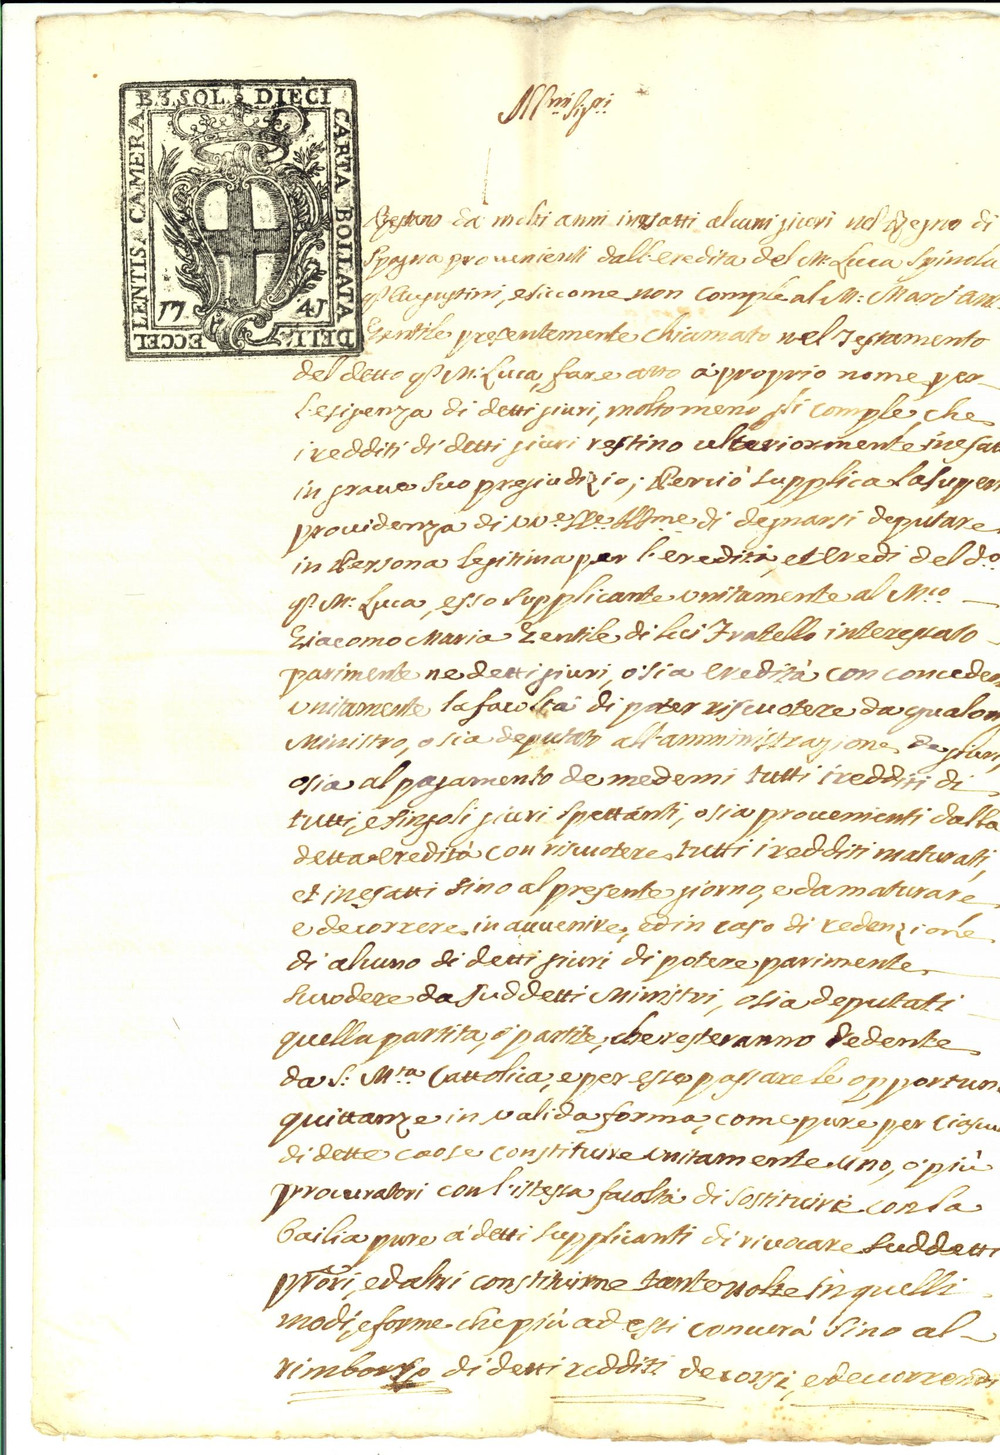 B. 3. SOL. DIECI
CARTA BOLLATA
DELL'
ECCEL
LENTIS. CAMERA
17 41
Ser.mi Sig.ri
Restano da molti anni inesatti alcuni giuri nel Regno di
Spagna provenienti dall'eredità del M. Luca Spinola
q. Augustini, e siccome non comple al M. Marc'Ant.
Gentile presentemente chiamato nel Testamento
del detto q. M. Luca, fare atto à proprio nome per
l'esigenza di detti giuri, molto meno gli comple che
i redditi di detti giuri restino ulteriormente inesat
in grave suo pregiudizio; Perciò supplica la super
providenza di VV. SS. Ill.me di degnarsi deputare
in Persona legitima per l'eredità, et Eredi del d.o
q. M. Luca, esso supplicante unitamente al M.co
Giacomo Maria Gentile di lui Fratello interessato
parimente ne detti giuri, o' sia eredità con conceder
unitamente la facoltà di poter riscuotere da qualonq
Ministro, o sia deputato all'amministrazione de giuri,
o sia al pagamento de medemi tutti i redditi di
tutti, e singoli giuri spettanti, o sia provenienti dalla
detta eredità con riscuotere tutti i redditi maturati,
et inesatti sino al presente giorno, e da maturare
e decorrere in avvenire, ed in caso di redenzione
di alcuno di detti giuri di potere parimente
scuodere da suddetti Ministri, o sia deputati
quella partita, o' partite, che resteranno
da S. M.tà Cattolica, e per esse passare le opportun
quittanze in valida forma, come pure per ciascu
di dette cause constituire unitamente uno, o' più
procuratori con l'istessa facoltà di sostituire con la
bailia pure à detti supplicanti di rivocare suddetti
p.tori, ed altri constituirne tante volte in quelli
modi, e forme che più ad essi converrà sino al
rimborso di detti redditi decorsi, e decorrendi